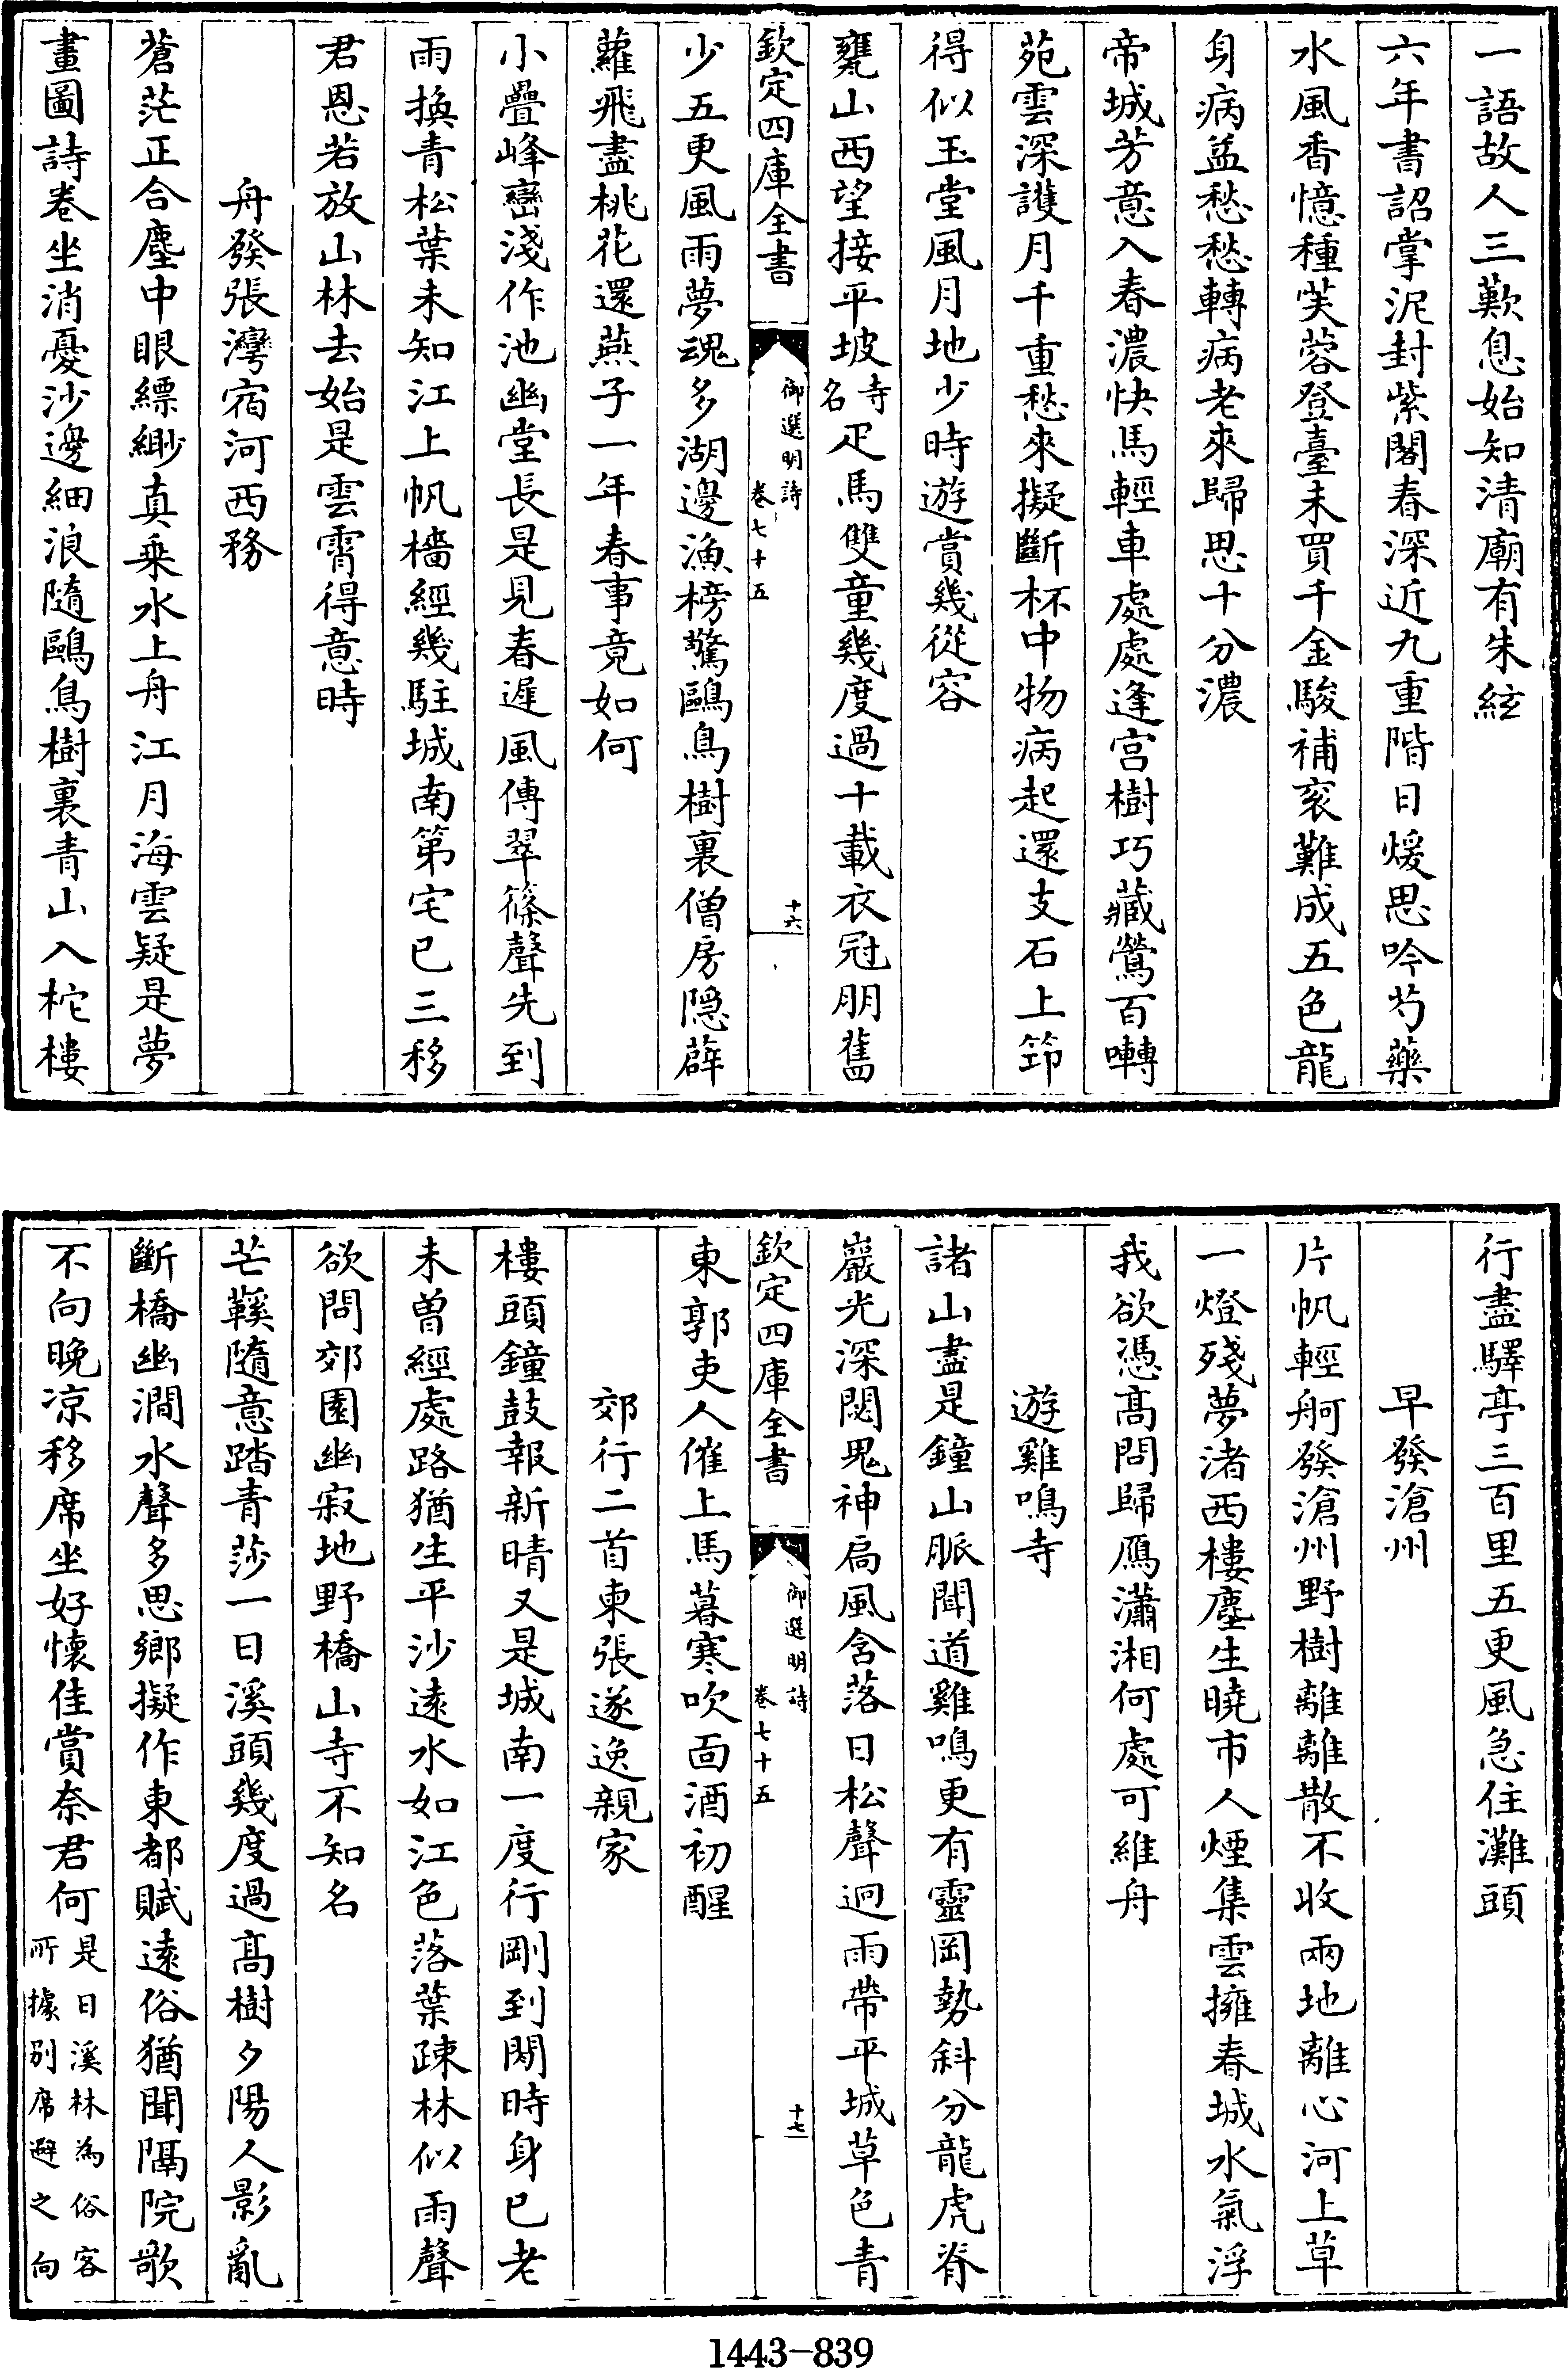 一語故人三歎息始知清廟有朱絃
六年書詔掌泥封紫閣春深近九重階日煖思吟芍藥
水風香憶種芙蓉登臺未買千金駿補衮難成五色龍
身病益愁愁轉病老來歸思十分濃
帝城芳意入春濃快馬輕車處處逢宫樹巧藏鶯百囀
苑雲深護月千重愁來擬斷杯中物病起還支石上筇
得似玉堂風月地少時遊賞幾從容
甕山西望接平坡寺名疋馬雙童幾度過十載衣冠朋舊
欽定四庫全書
御選明詩
卷七十五
十六
少五更風雨夢魂多湖邊漁榜驚鷗鳥樹裏僧房隠薜
蘿飛盡桃花還燕子一年春事竟如何
小疊峰巒淺作池幽堂長是見春遲風傳翠篠聲先到
雨換青松葉未知江上帆檣經幾駐城南第宅已三移
君恩若放山林去始是雲霄得意時
舟發張灣宿河西務
蒼茫正合塵中眼縹緲真乘水上舟江月海雲疑是夢
畫圖詩卷坐消憂沙邊細浪隨鷗鳥樹裏青山入柁樓
行盡驛亭三百里五更風急住灘頭
早發滄州
片帆輕舸發滄州野樹離離散不收兩地離心河上草
一燈殘夢渚西樓塵生曉市人煙集雲擁春城水氣浮
我欲憑高問歸鴈瀟湘何處可維舟
遊雞鳴寺
諸山盡是鐘山脈聞道雞鳴更有靈岡勢斜分龍虎脊
巖光深閟鬼神扃風含落日松聲迥雨帶平城草色青
欽定四庫全書
御選明詩
卷七十五
十七
東郭吏人催上馬暮寒吹面酒初醒
郊行二首柬張遂逸親家
樓頭鐘鼓報新晴又是城南一度行剛到閒時身已老
未曽經處路猶生平沙逺水如江色落葉疎林似雨聲
欲問郊園幽寂地野橋山寺不知名
芒鞵隨意踏青莎一日溪頭幾度過高樹夕陽人影亂
斷橋幽澗水聲多思鄉擬作東都賦逺俗猶聞隔院歌
不向晚凉移席坐好懷佳賞奈君何是日溪林為俗客所據别席避之向
1443-839